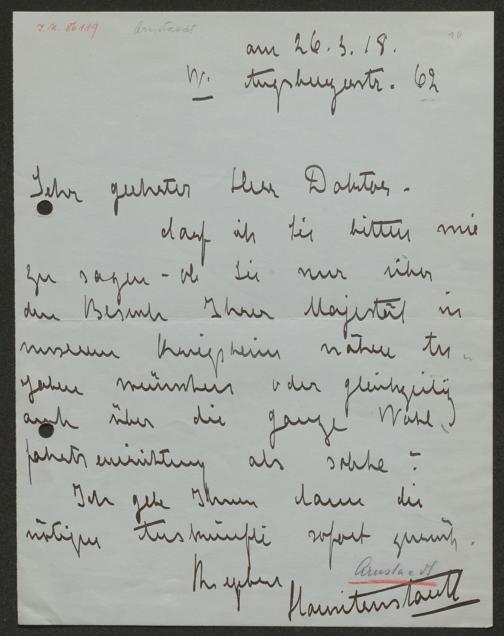 J.N. 86119 Arnstaedt
am 26.3.18.
W. Augsburgerstr. 62
Sehr geehrter Herr Doktor.
darf ich Sie bitten mir
zu sagen - ob Sie nur über
den Besuch Ihrer Majestät in
unserem Königsheim nähere An-
gaben wünschen oder gleichzeitig
auch über die ganze Wohl-
fahrtseinrichtung als solche?
Ich gebe Ihnen dann die
nötigen Auskünfte sofort
Arnstaedt